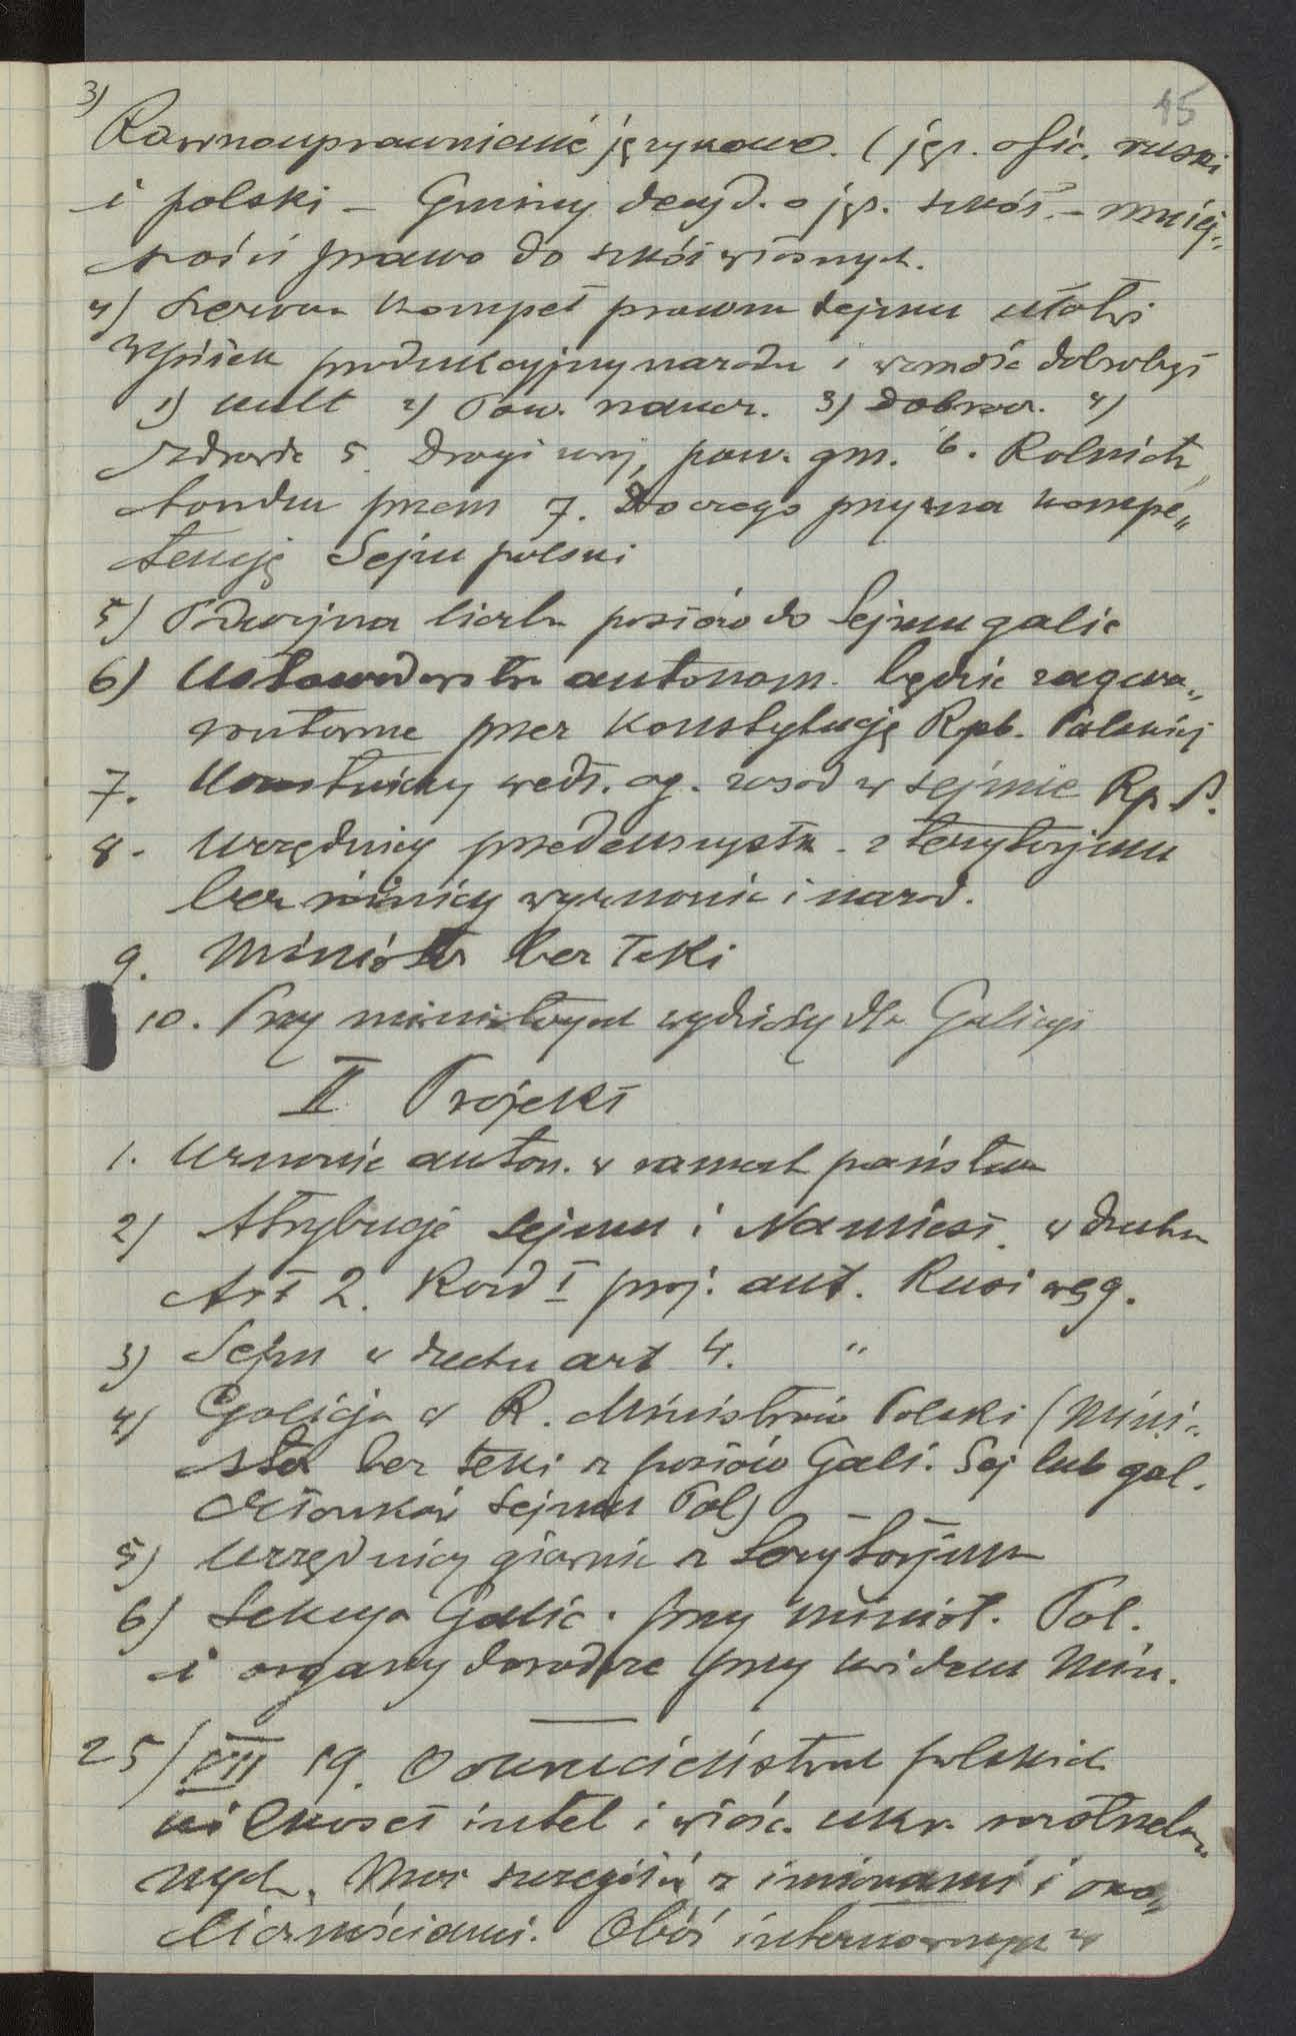 15
3) Równouprawnienie językowe. (jęz. ofic. ruski
i polski – Gminy decyd. o jęz. szkół. – mniej„
szości prawo do szkół własnych.
4) Szeroka kompet prawna sejmu
produkcyjny narodu i dobrobyt
1) kult 2) Pow. naucz. 3) Dobrocz. 4)
Zdrowie 5. Drogi kraj, pow. gm. 6. Rolnictw
handlu przem 7. Do czego przyzna kompe„
tencję Sejm polski
5) Podwójna liczba posłów do Sejmu galic
6) Ustawodawstwo autonom. będzie zagwa„
rantowne przez Konstytucję Rpb. Polskiej
7. wedł. og. zasad w sejmie Rp. P.
8. Urzędnicy przedewszystk. z terytorjum
bez różnicy wyznania i narod.
9. Minister bez teki
10. Przy ministrach wydziały dla Galicyi
II Projekt
1. Uznanie auton. w ramach państwa
2) Atrybucje sejmu i Namiest. w duchu
Art 2. Rozd I proj. aut. Rusi węg.
3) Sejm w duchu art 4. "
4) Galicja w R. Ministrów Polski (Mini„
ster bez teki z posłów Gali. Sej lub gal.
członków Sejmu Pol)
5) Urzędnicy głównie z terytorjum
6) Sekcya Galic. przy minist. Pol.
i organy doradcze przy każdem Min.
25/VII 19. O okrucieństwach polskich
ilkoset intel i włośc. ukr. rozstrzela„
nych. szczegóły z imionami i oko„
licznościami. Obóz internowanych w